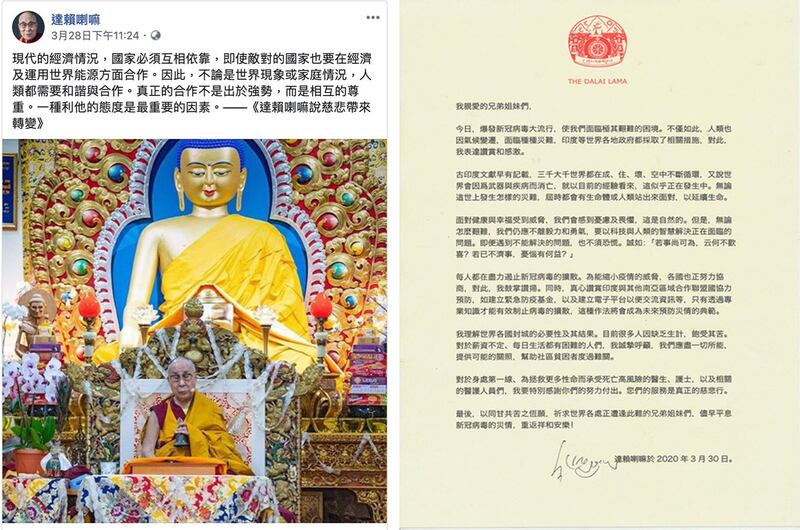 達賴喇嘛
3月28日下午11:24
現代的經濟情況，國家必須互相依靠，即使敵對的國家也要在經濟
及運用世界能源方面合作。因此，不論是世界現象或家庭情況，人
類都需要和諧與合作。真正的合作不是出於強勢，而是相互的尊
重。一種利他的態度是最重要的因素。——《達賴喇嘛說慈悲帶來
轉變》
THE DALAI LAMA
我親愛的兄弟姐妹們，
今日，爆發新冠病毒大流行，使我們面臨極其艱難的困境。不僅如此，人類也
因氣候變遷，面臨種種災難，印度等世界各地政府都採取了相關措施，對此，
我表達讚賞和感激。
古印度文獻早有記載，三千大千世界都在成、住、壞、空中不斷循環，又說世
界會因爲武器與疾病而消亡，就以目前的經驗看來，這似乎正在發生中。無論
這世上發生怎樣的災難，屆時都會有生命體或人類站出來面對，以延續生命。
面對健康與幸福受到威脅，我們會感到憂慮及畏懼，這是自然的。但是，無論
怎麼艱難，我們仍應不離毅力和勇氣，要以科技與人類的智慧解決正在面臨的
問題。即使遇到不能解決的問題，也不須恐慌。誠如：「若事尚可為，云何不歡
喜？若已不濟事，憂惱有何益？」
每人都在盡力遏止新冠病毒的擴散。為能縮小疫情的威脅，各國也正努力協
商，對此，我鼓掌讚揚。同時，真心讚賞印度與其他南亞區域合作聯盟國協力
預防，如建立緊急防疫基金，以及建立電子平台以便交流資訊等，只有透過專
業知識才能有效制止病毒的擴散，這種作法將會成為未來預防災情的典範。
我理解世界各國封城的必要性及其結果。目前很多人因缺乏生計，飽受其苦。
對於薪資不定、每日生活都有困難的人們，我誠摯呼籲，我們應盡一切所能，
提供可能的關照，幫助社區貧困者度過難關。
對於身處第一線、為拯救更多性命而承受死亡高風險的醫生、護士，以及相關
的醫護人員們，我要特別感謝你們的努力付出。您們的服務是真正的慈悲行。
最後，以同甘共苦之恆願，祈求世界各處正遭逢此難的兄弟姐妹們，儘早平息
新冠病毒的災情，重返祥和安樂！
達賴喇嘛於 2020 年 3 月 30 日。